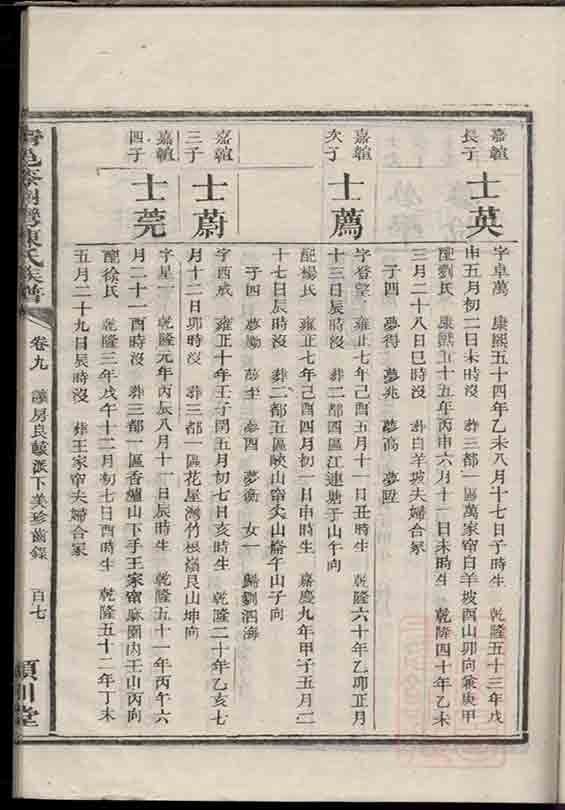 嘉誼長子
士英
字卓萬 康熙五十四年乙未八月十七日子時生 乾隆五十三年戊
申五月初二日未時沒 葬三都一區萬家帘白羊坡酉山卯向兼庚甲
配劉氏 康熙五十五年丙申六月十一日未時生 乾隆四十年乙未
三月二十八日巳時沒 葬白羊坡夫婦合冢
子四 夢得 夢兆 夢高 夢陞
嘉誼次子
士薦
字登望 雍正七年己酉五月十一日丑時生 乾隆六十年乙卯正月
十三日辰時沒 葬二都四區江連塘子山午向
配楊氏 雍正七年己酉四月初一日申時生 嘉慶九年甲子五月二
十七日辰時沒 葬二都五區峽山帘尖山崙午山子向
子四 夢勵 夢至 夢酉 夢衡 女一 歸劉泗海
嘉誼三子
士蔚
字西成 雍正十年壬子閏五月初七日亥時生 乾隆二十年乙亥七
月十二日卯時沒 葬三都一區花屋灣竹根塅艮山坤向
嘉誼四子
士莞
字星一 乾隆元年丙辰八月十一日辰時生 乾隆五十一年丙午六
月二十一酉時沒 葬三都一區香爐山下手王家帘麻園內壬山丙向
配徐氏 乾隆三年戊午十二月初七日酉時生 乾隆五十二年丁未
五月二十九日辰時沒 葬王家帘夫婦合冢
陳氏族譜
卷九
房良 派下美珍齒錄
百七
潁川堂